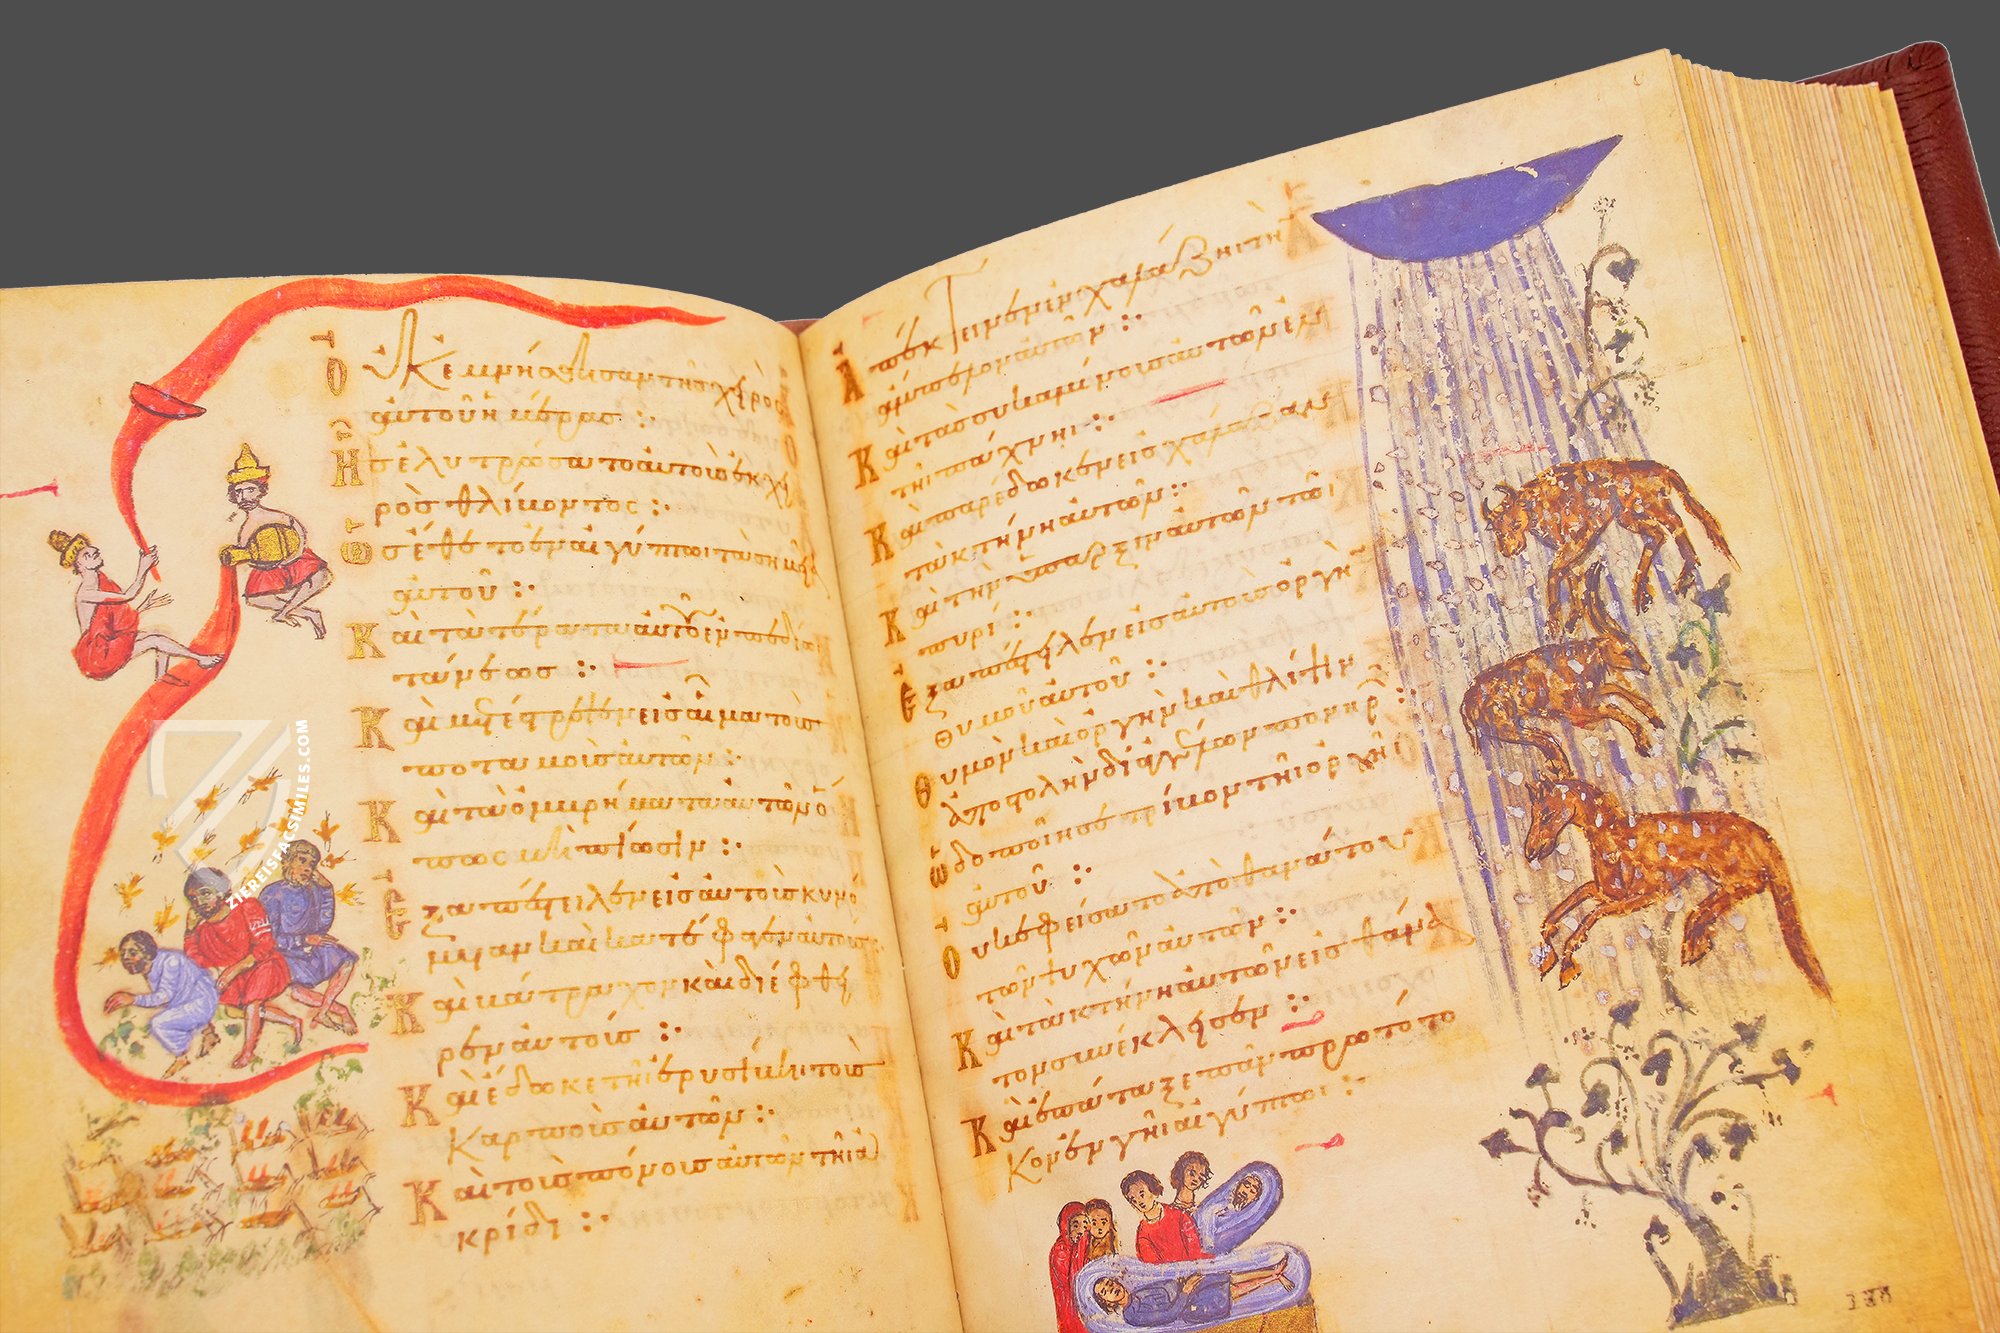 Οὐκ ἐμνήσθησαν τῆς χειρὸς
αὐτοῦ ἡμέρας :·
Ἧς ἐλυτρώσατο αὐτοὺς ἐκ χει
ρὸς θλίβοντος :·
Ὡς ἔθετο ἐν αἰγύπτωι τὰ σημεῖα
αὐτοῦ :·
Καὶ τὰ τέρατα αὐτοῦ ἐν πεδίω
τάνεως :·
Καὶ μετέστρεψεν εἰς αἷμα τοὺς
ποταμοὺς αὐτῶν :·
Καὶ τὰ ὀμβρήματα αὐτῶν ὅ
πως μὴ πίωσιν :·
Ἐξαπέστειλεν εἰς αὐτοὺς κυνό
μυιαν καὶ κατέφαγεν αὐτούς :·
Καὶ βάτραχον καὶ διέφθει
ρεν αὐτούς :·
Καὶ ἔδωκε τῆι ἐρυσίβηι τοὺς
καρποὺς αὐτῶν :·
Καὶ τοὺς πόνους αὐτῶν τῆι ἀ
κρίδι :·
Ἀπέκτεινεν ἐν χαλάζηι τὴν
ἄμπελον αὐτῶν :·
Καὶ τὰς συκαμίνους αὐτῶν ἐν
τῆι πάχνηι :·
Καὶ παρέδωκεν εἰς χάλαζαν
τὰ κτήνη αὐτῶν :·
Καὶ τὴν ὕπαρξιν αὐτῶν τῶι
πυρί :·
Ἐξαπέστειλεν εἰς αὐτοὺς ὀργὴν
θυμοῦ αὐτοῦ :·
Θυμὸν καὶ ὀργὴν καὶ θλίψιν
ἀποστολὴν δι ἀγγέλων πονηρῶν :·
Ὡδοποίησε τρίβον τῆι ὀργῆι
αὐτοῦ :·
Οὐκ ἐφείσατο ἀπὸ θανάτου
τῶν ψυχῶν αὐτῶν :·
Καὶ τὰ κτήνη αὐτῶν εἰς θάνα
τον συνέκλεισεν :·
Καὶ ἐπάταξε πᾶν πρωτότο
κον ἐν γῆι αἰγύπτωι :·
ZIEREISFACSIMILES.COM